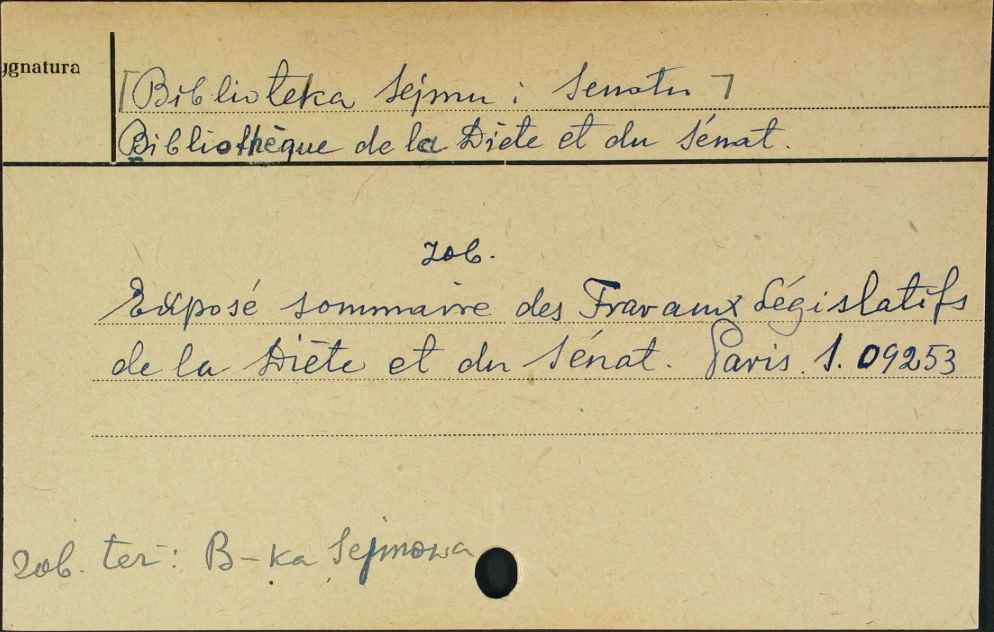 ygnatura
[Biblioteka Sejmu i Senatu]
Bibliothèque de la Diète et du Sénat.
zob.
Exposé sommaire des Travaux Législatifs
de la Diète et du Sénat. Paris. S. 09253
zob. też: B-ka Sejmowa